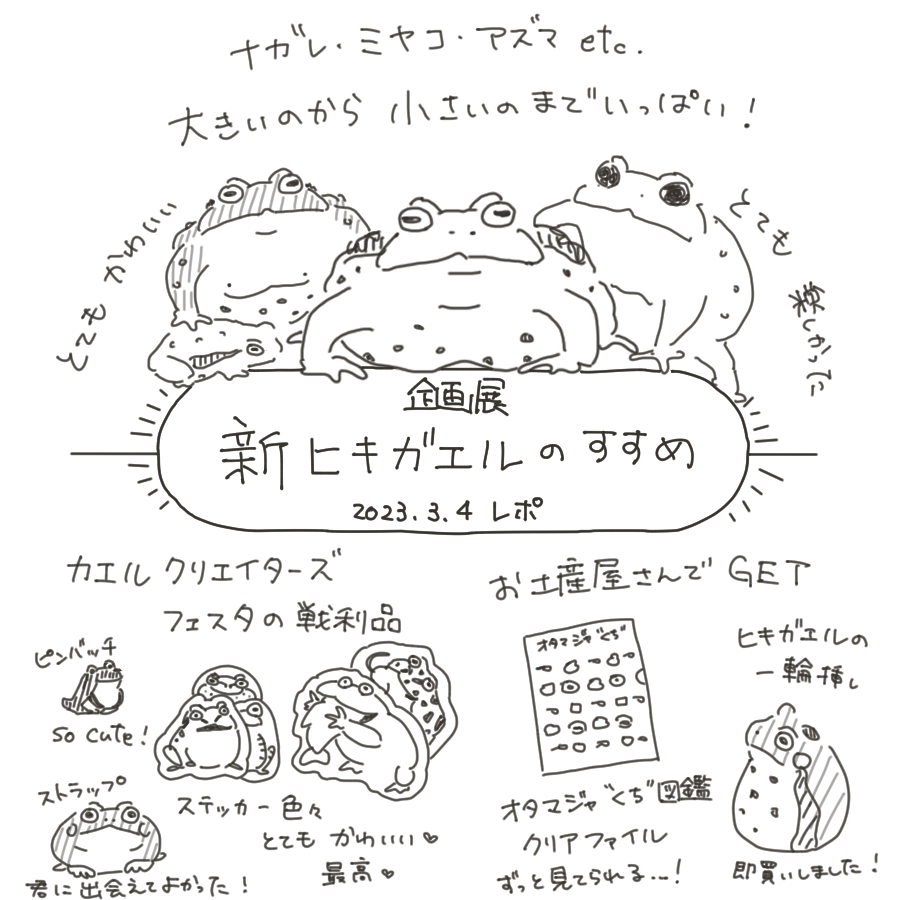 ナガレ・ミヤコ・アズマ etc.
大きいのから 小さいのまでいっぱい!
とても かわいい
とても 楽しかった
企画展
新ヒキガエルのすすめ
2023.3.4 レポ
カエル クリエイターズ
フェスタの 戦利品
ピンバッチ
so cute!
ストラップ
君に 出会えてよかった!
ステッカー 色々
とても かわいい♡
最高♡
お土産屋さんで GET
オタマジャ"くち"
オタマジャ"くち"図鑑
クリアファイル
ずっと見てられる...!
ヒキガエルの
一輪挿し
即買いしました!